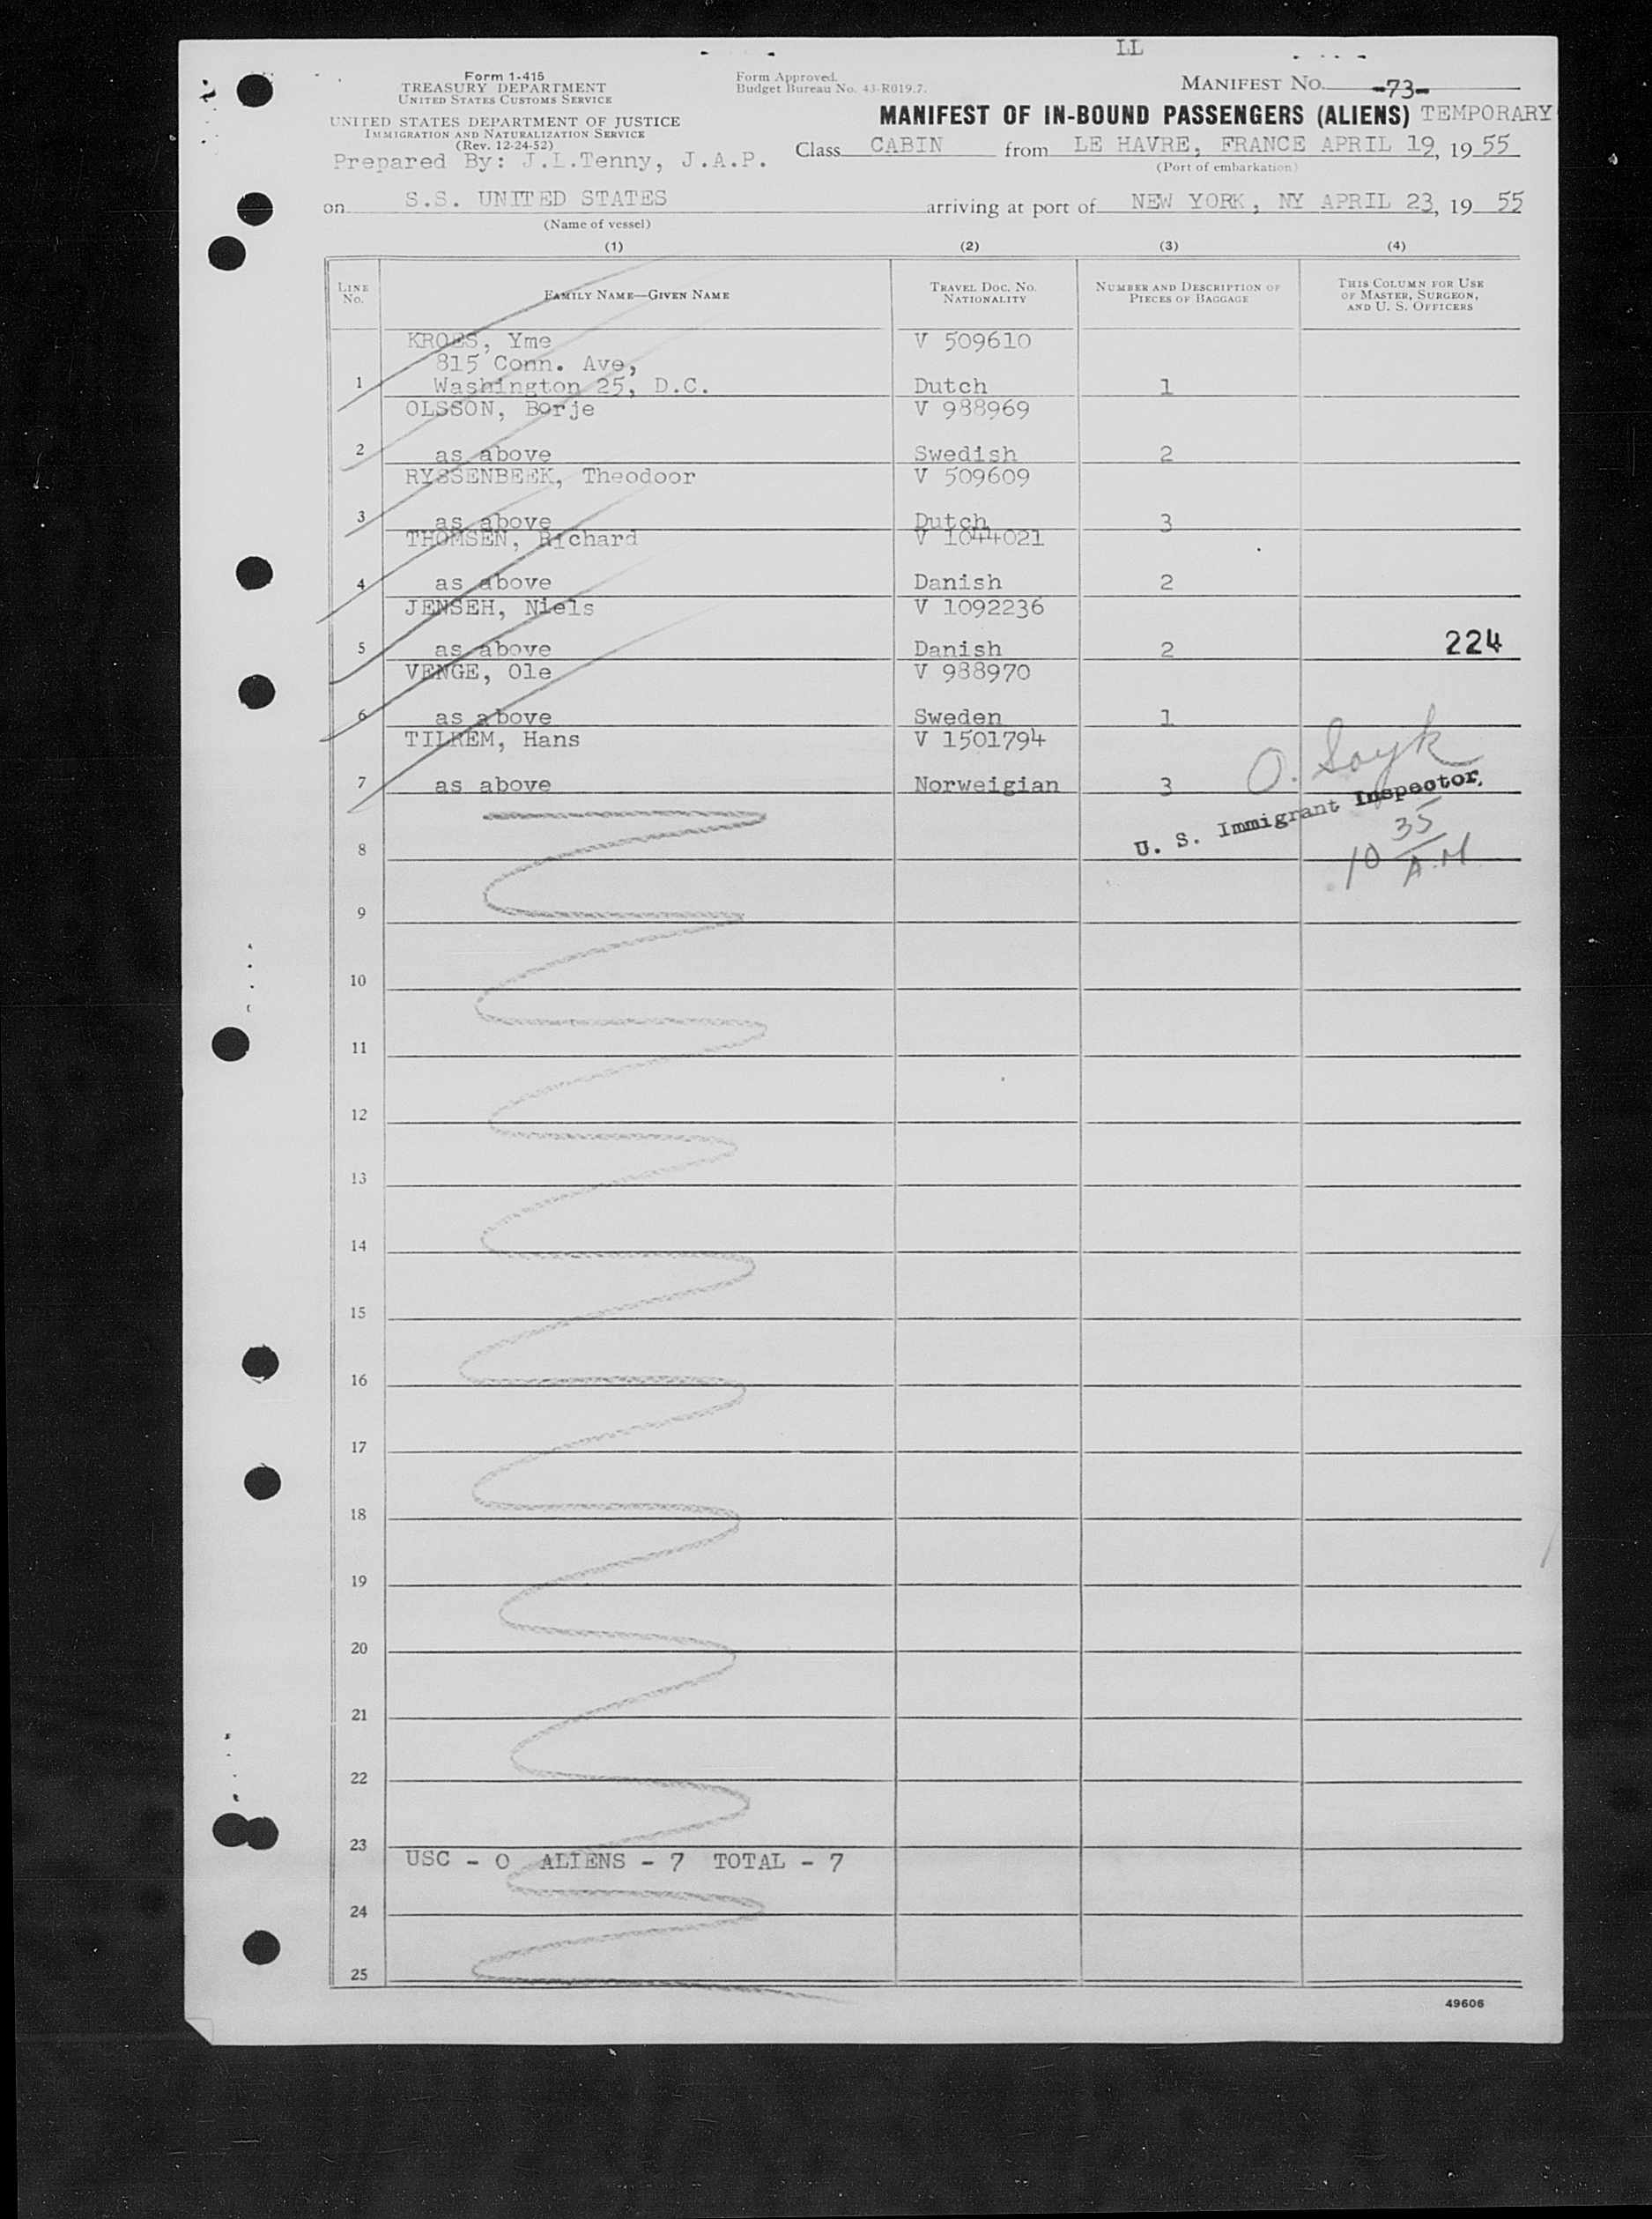 LL
Form 1-415
TREASURY DEPARTMENT
UNITED STATES CUSTOMS SERVICE
Form Approved.
Budget Bureau No. 43-R019.7.
MANIFEST NO. -73-
UNITED STATES DEPARTMENT OF JUSTICE
IMMIGRATION AND NATURALIZATION SERVICE
(Rev. 12-24-52)
MANIFEST OF IN-BOUND PASSENGERS (ALIENS) TEMPORARY
Prepared By: J.L.Tenny, J.A.P.
Class CABIN from LE HAVRE, FRANCE APRIL 19, 1955
(Port of embarkation)
on S.S. UNITED STATES arriving at port of NEW YORK, NY APRIL 23, 1955
(Name of vessel)
(1) (2) (3) (4)
LINE NO.
FAMILY NAME—GIVEN NAME
TRAVEL DOC. NO. NATIONALITY
NUMBER AND DESCRIPTION OF PIECES OF BAGGAGE
THIS COLUMN FOR USE OF MASTER, SURGEON, AND U. S. OFFICERS
KROES, Yme V 509610
815 Conn. Ave,
1 Washington 25, D.C. Dutch 1
OLSSON, Borje V 988969
2 as above Swedish 2
RYSSENBEEK, Theodoor V 509609
3 as above Dutch 3
THOMSEN, Richard V 1044021
4 as above Danish 2
JENSEH, Niels V 1092236
5 as above Danish 2 224
VENGE, Ole V 988970
6 as above Sweden 1
TILREM, Hans V 1501794
7 as above Norweigian 3
O.
U. S. Immigrant Inspector,
10 35 A.M
8
9
10
11
12
13
14
15
16
17
18
19
20
21
22
23
USC - 0 ALIENS - 7 TOTAL - 7
24
25
49606